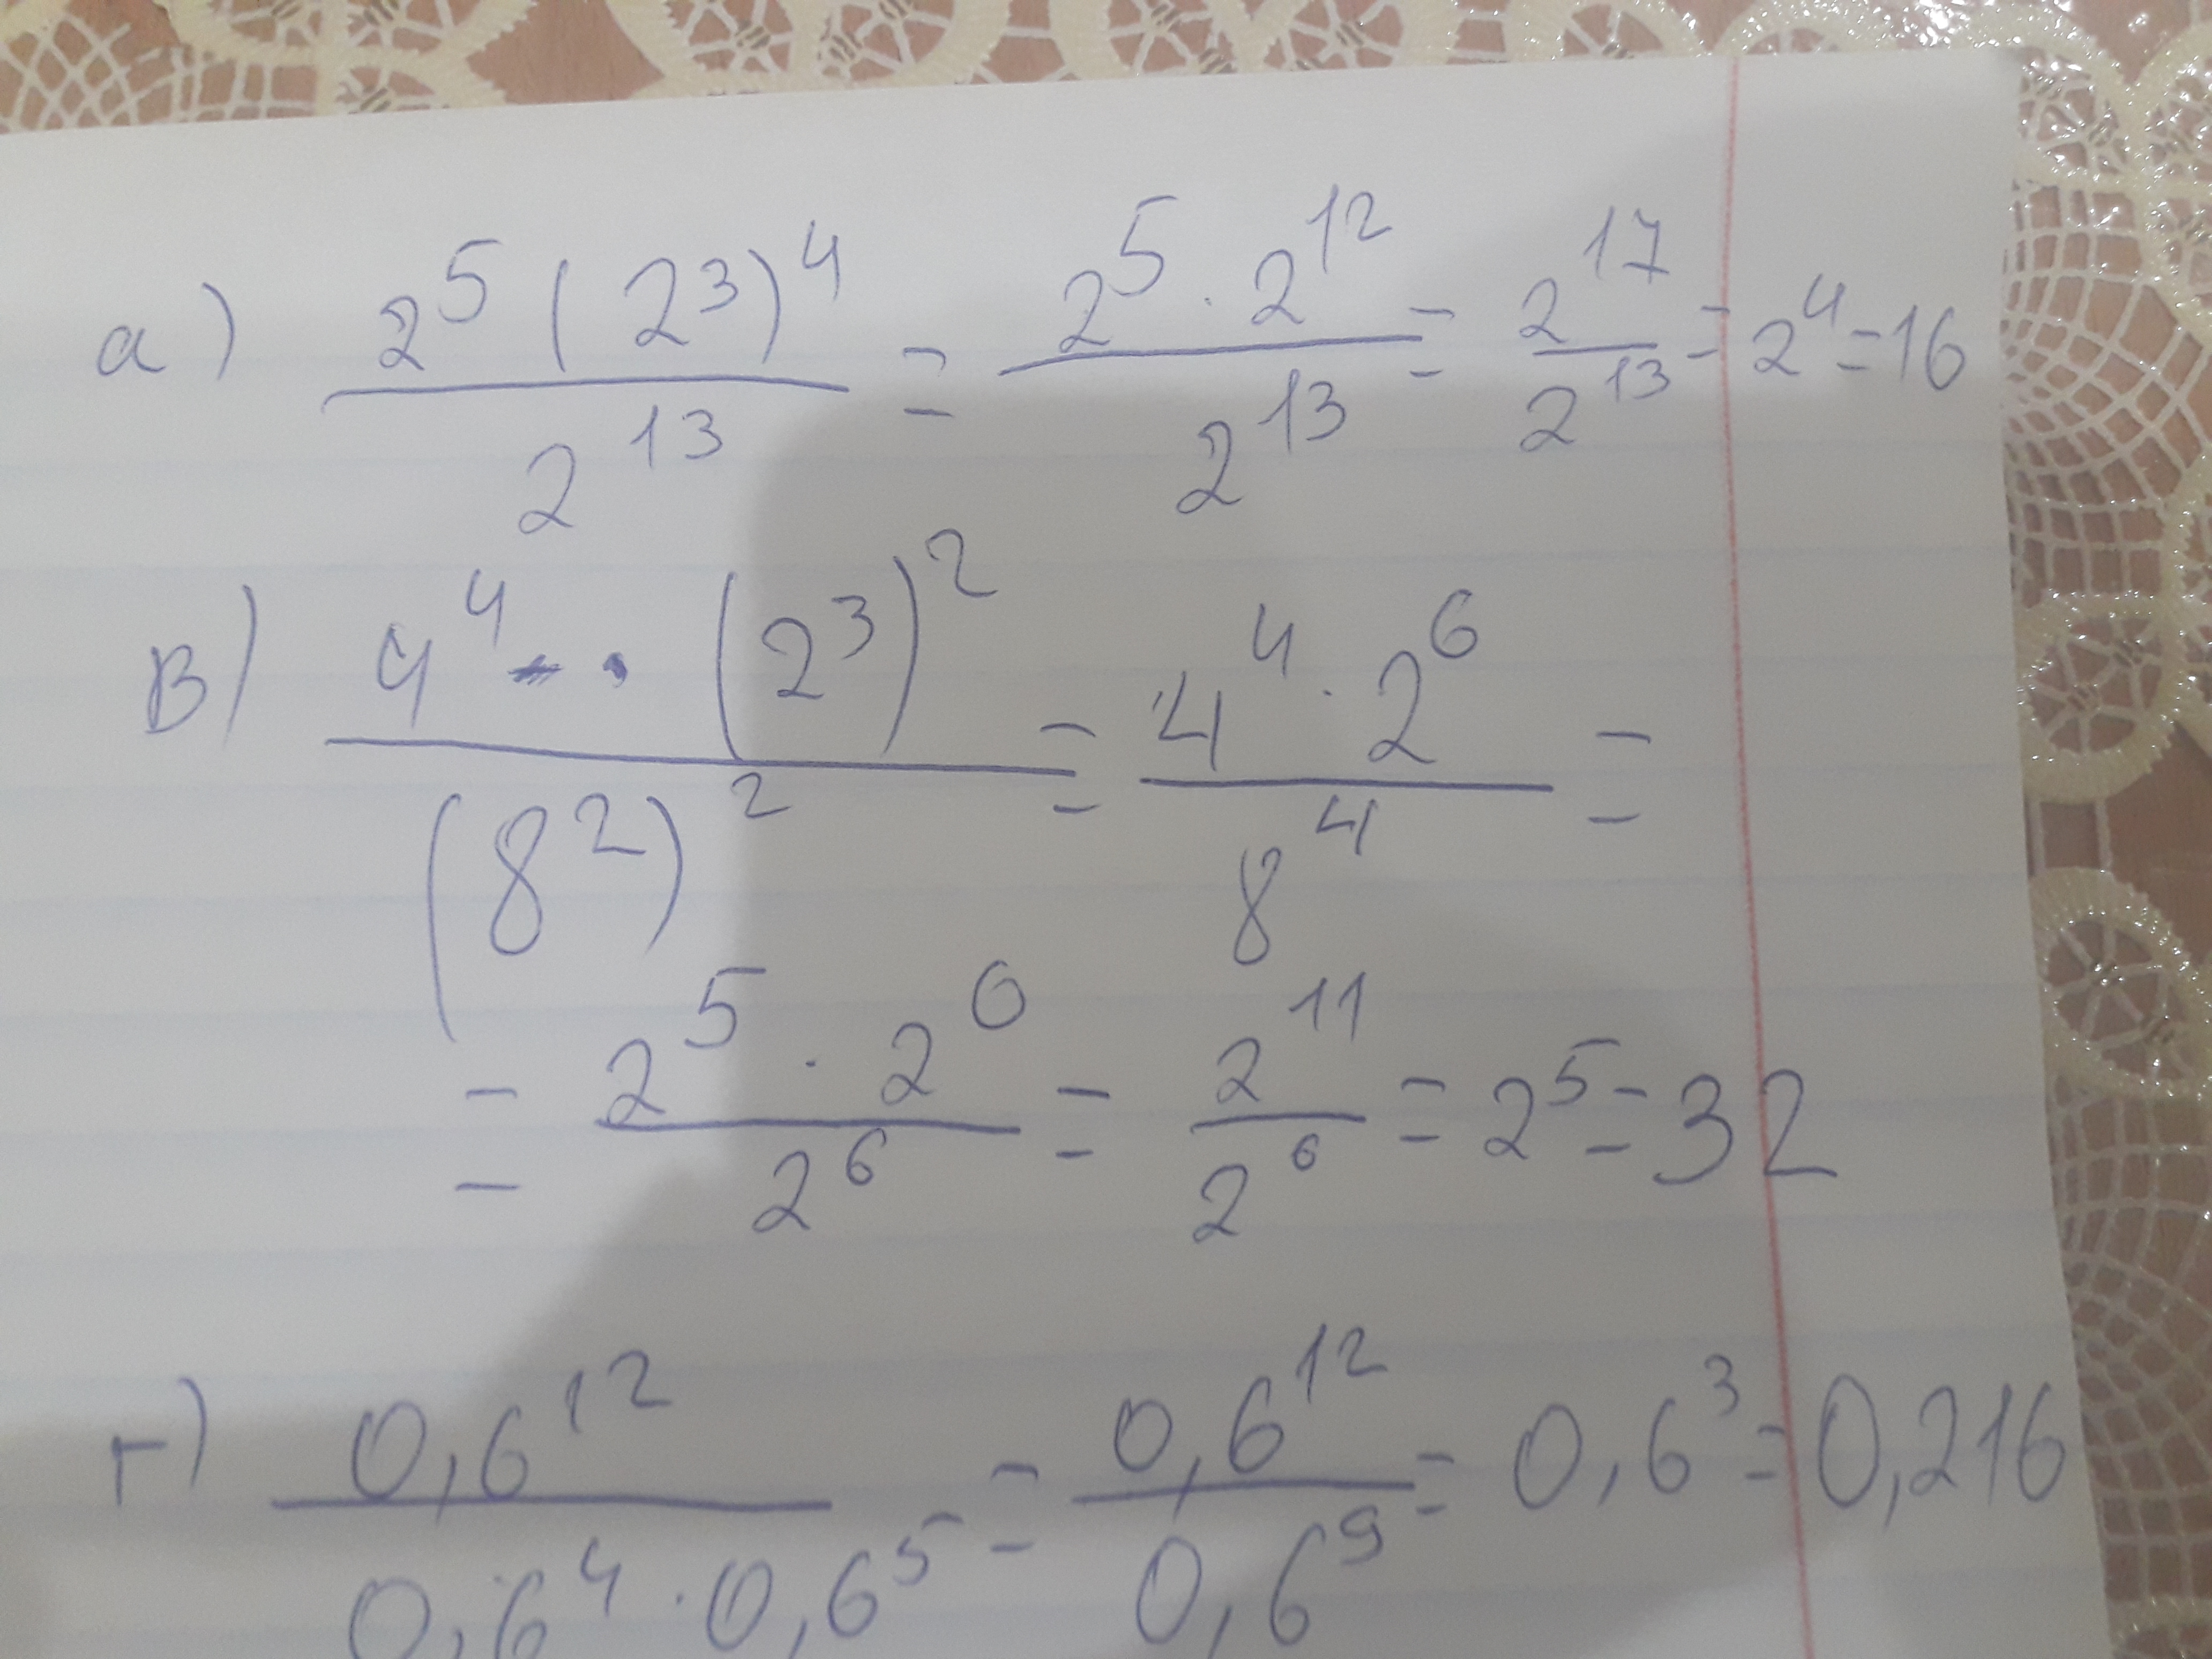 а) 2⁵(2³)⁴ / 2¹³ = 2⁵ · 2¹² / 2¹³ = 2¹⁷ / 2¹³ = 2⁴ = 16
в) 4⁴ · (2³)² / (8²)² = 4⁴ · 2⁶ / 8⁴ =
= 2⁵ · 2⁶ / 2⁶ = 2¹¹ / 2⁶ = 2⁵ = 32
г) 0,6¹² / 0,6⁴ · 0,6⁵ = 0,6¹² / 0,6⁹ = 0,6³ = 0,216